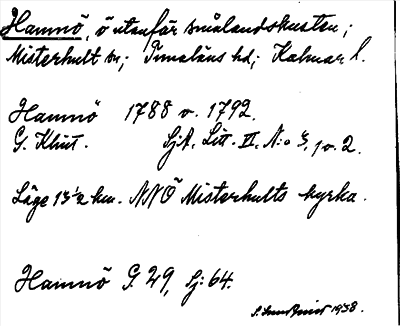 Hamnö, ö utanför smålandskusten;
Misterhult sn; Tunaläns hd; Kalmar l.
Hamnö 1788 o. 1792.
G. Klint. SjA, Litt. II, N:o 3, 1 o. 2.
Läge 13 1/2 km. NNÖ Misterhults kyrka.
Hamnö G. 29, Sj: 64.
1938.